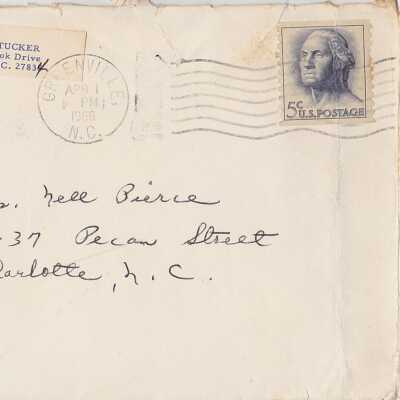 TUCKER
ok Drive
C. 27834
GREENVILLE,
APR 1
PM
1966
N.C.
5c
U.S. POSTAGE
s. Nell Pierce
37 Pecan Street
arlotte, N.C.